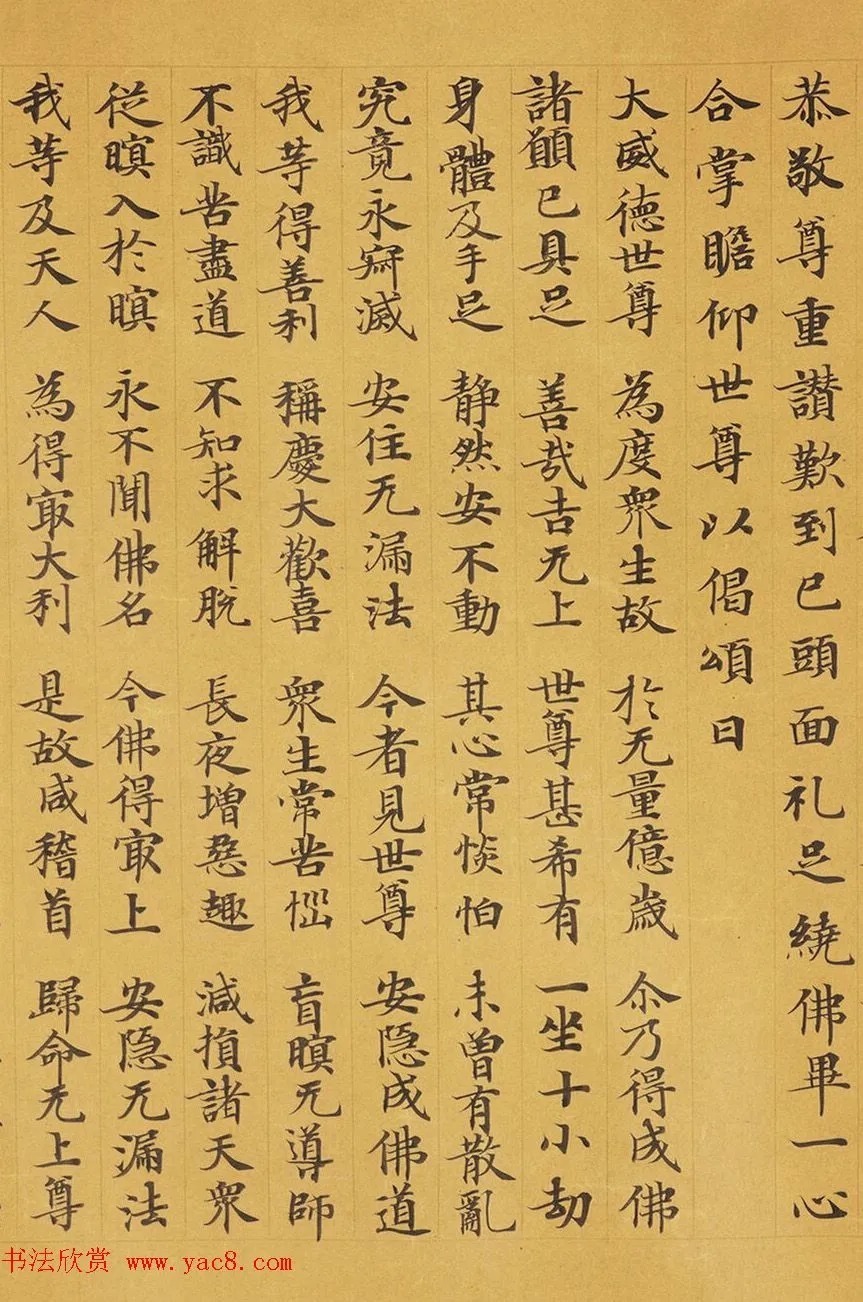 恭敬尊重讃歎到已頭面礼足繞佛畢一心
合掌瞻仰世尊以偈頌曰
大威德世尊 為度衆生故 於无量億歲 尒乃得成佛
諸願已具足 善哉吉无上 世尊甚希有 一坐十小劫
身體及手足 静然安不動 其心常惔怕 未曾有散亂
究竟永寂滅 安住无漏法 今者見世尊 安隐成佛道
我等得善利 稱慶大歡喜 衆生常苦惱 盲瞑无導師
不識苦盡道 不知求解脱 長夜增惡趣 減損諸天衆
從瞑入於瞑 永不聞佛名 今佛得冣上 安隐无漏法
我等及天人 為得冣大利 是故咸稽首 歸命无上尊
书法欣赏 www.yac8.com